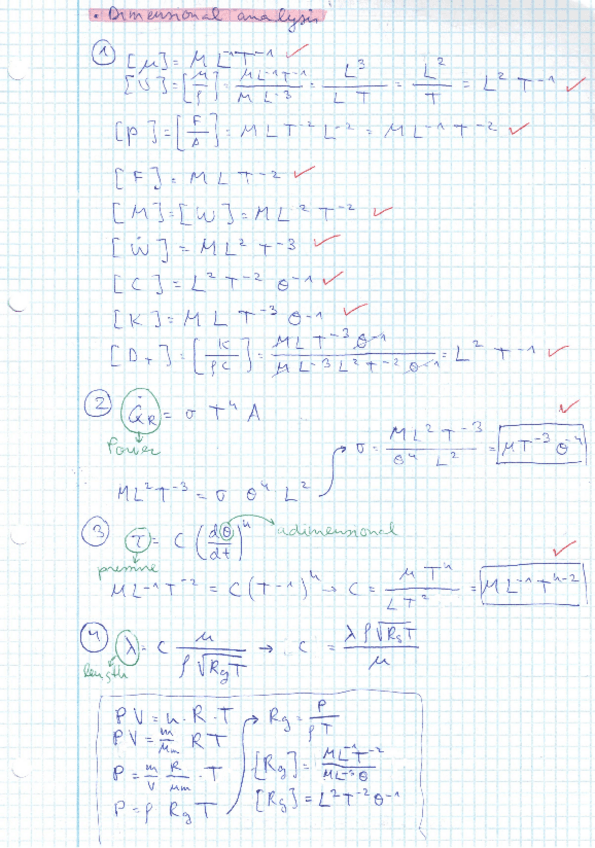 • Dimensional analysis
① [μ] = M L⁻¹ T⁻¹ ✓
[ν] = [μ/ρ] = (M L⁻¹ T⁻¹)/(M L⁻³) = L³/(L T) = L²/T = L² T⁻¹ ✓
[P] = [F/A] = M L T⁻² L⁻² = M L⁻¹ T⁻² ✓
[F] = M L T⁻² ✓
[M] = [W] = M L² T⁻² ✓
[Ẇ] = M L² T⁻³ ✓
[C] = L² T⁻² θ⁻¹ ✓
[K] = M L T⁻³ θ⁻¹ ✓
[D_T] = [K/(ρC)] = (M L T⁻³ θ⁻¹)/(M L⁻³ L² T⁻² θ⁻¹) = L² T⁻¹ ✓
② Q̇_R = σ T⁴ A ✓
Power
M L² T⁻³ = σ θ⁴ L² → σ = (M L² T⁻³)/(θ⁴ L²) = M T⁻³ θ⁻⁴
③ τ = C (dθ/dt)ⁿ → adimensional ✓
pressure
M L⁻¹ T⁻² = C (T⁻¹)ⁿ → C = (M Tⁿ)/(L T²) = M L⁻¹ Tⁿ⁻²
④ λ = C μ/(ρ√(R_g T)) → C = (λ ρ √(R_g T))/μ
length
P V = n · R · T → R_g = P/(ρ T)
P V = (m/μ_m) R T
P = (m/V) (R/μ_m) · T [R_g] = (M L⁻¹ T⁻²)/(M L⁻³ θ)
P = ρ R_g T [R_g] = L² T⁻² θ⁻¹